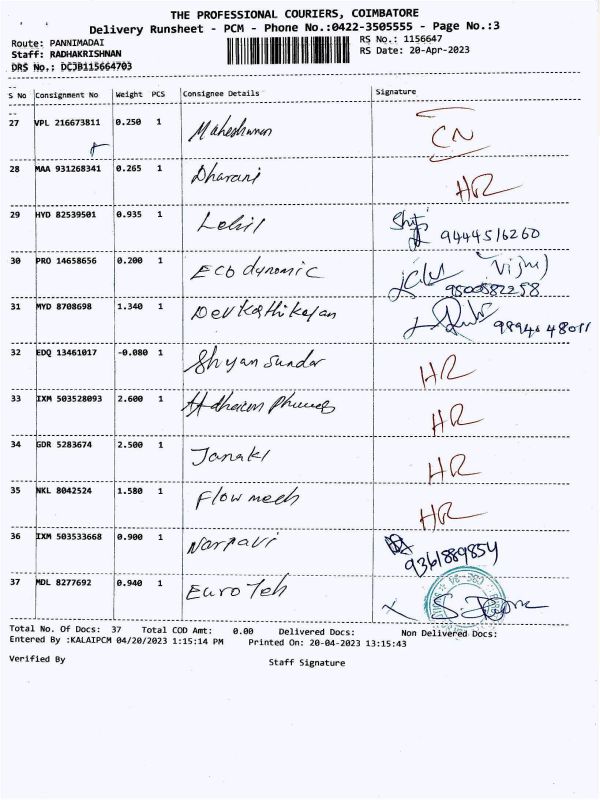 THE PROFESSIONAL COURIERS, COIMBATORE
Delivery Runsheet - PCM - Phone No.:0422-3505555 - Page No.:3
Route: PANNIMADAI
RS No.: 1156647
Staff: RADHAKRISHNAN
RS Date: 20-Apr-2023
DRS No.: DCJB115664703
S No Consignment No Weight PCS Consignee Details Signature
27 VPL 216673811 0.250 1 Maheshwaran CN
28 MAA 931268341 0.265 1 Dharani HR
29 HYD 82539501 0.935 1 9444516260
30 PRO 14658656 0.200 1 Eco dynomic 9500582258
31 MYD 8708698 1.340 1 Devkathikayan
32 EDQ 13461017 -0.080 1 Shyan Sundar HR
33 IXM 503528093 2.600 1 HR
34 GDR 5283674 2.500 1 Janaki HR
35 NKL 8042524 1.580 1 Flowmech HR
36 IXM 503533668 0.900 1 Narpavi 9361889854
37 MDL 8277692 0.940 1 Euro Teh
Total No. Of Docs: 37 Total COD Amt: 0.00 Delivered Docs: Non Delivered Docs:
Entered By :KALAIPCM 04/20/2023 1:15:14 PM Printed On: 20-04-2023 13:15:43
Verified By Staff Signature